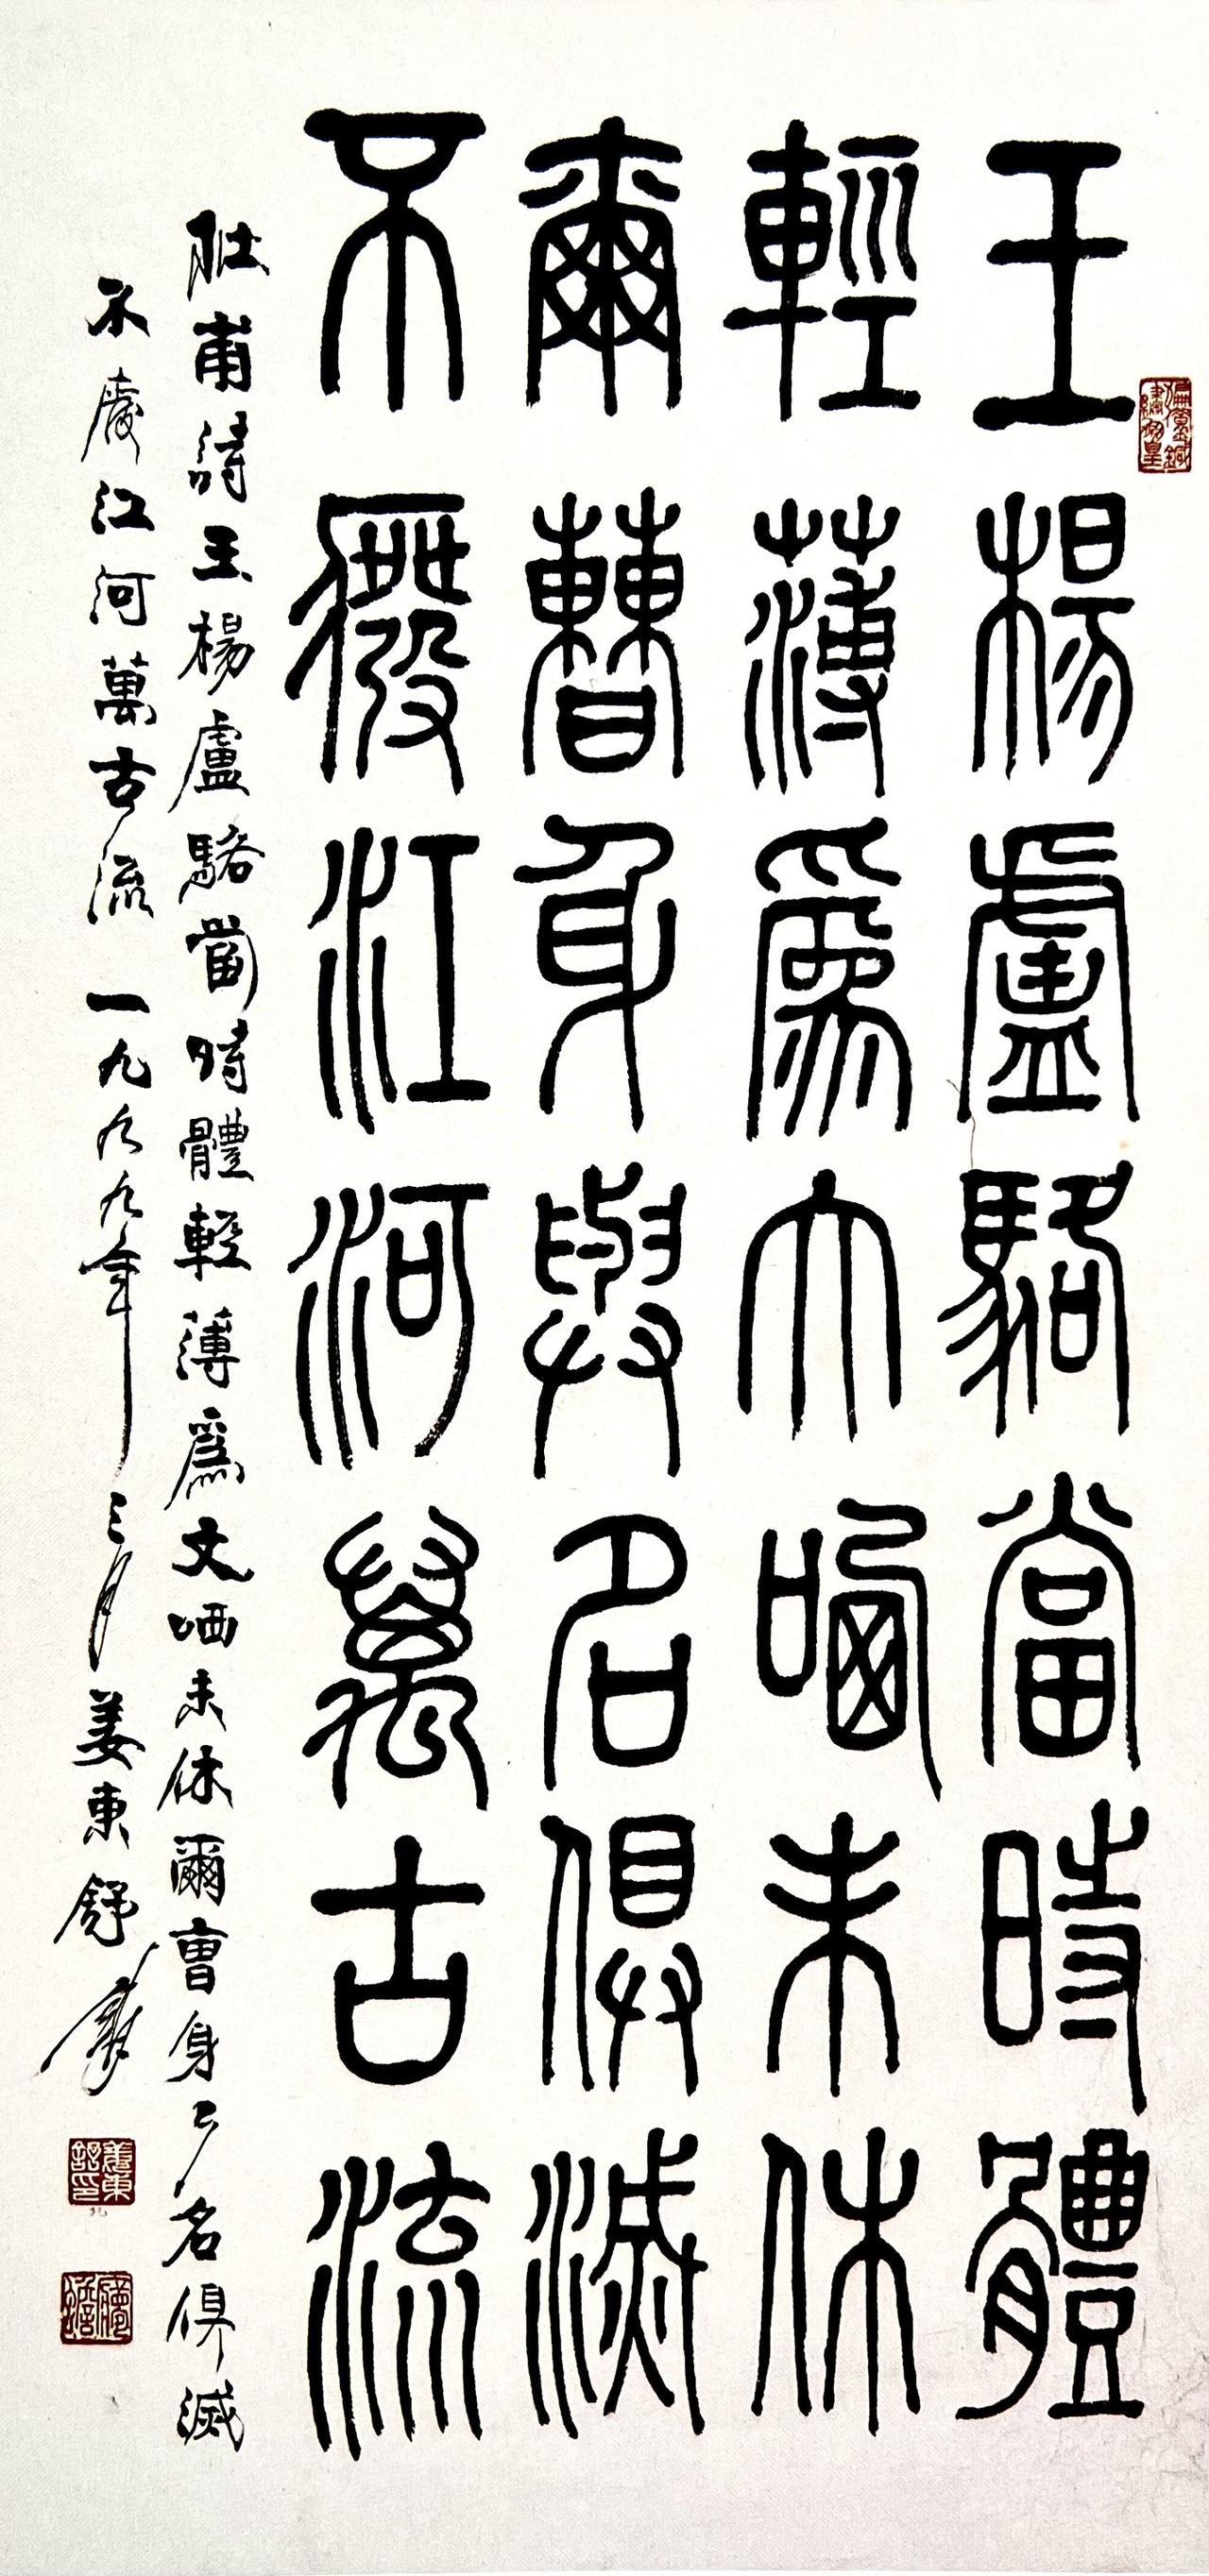 王楊盧駱當時體
輕薄爲文哂未休
爾曹身與名俱滅
不廢江河萬古流
杜甫詩王楊盧駱當時體輕薄爲文哂未休爾曹身與名俱滅
不廢江河萬古流一九九九年三月姜東舒書
姜東舒印